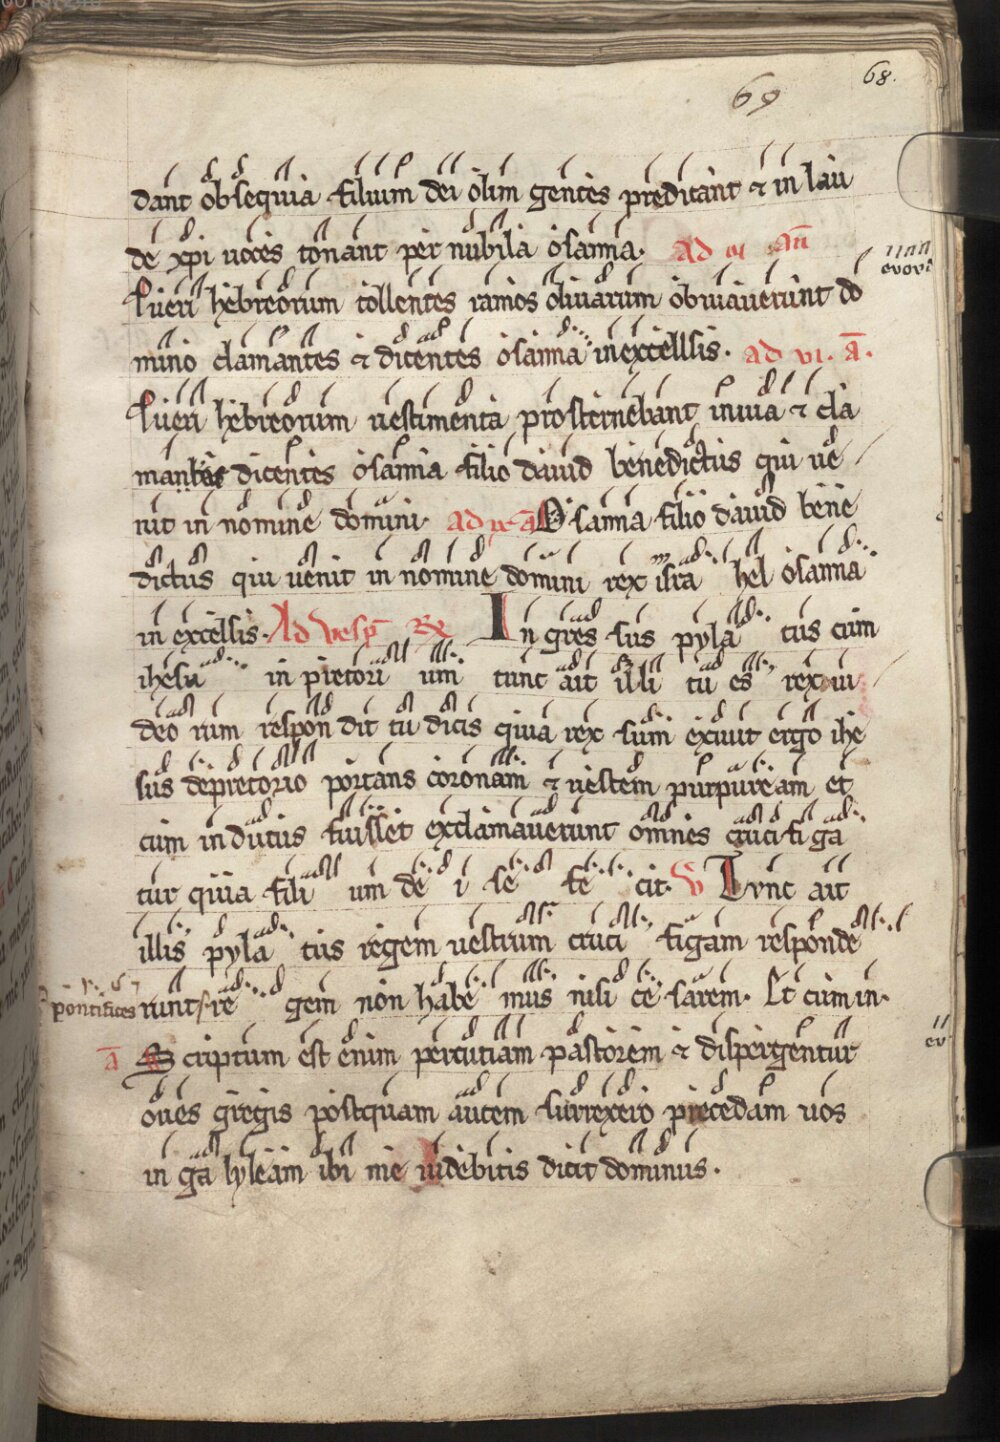 69
68.
dant obsequia filium dei olim gentes predicant & in lau
de xpi uoces tonant per nubila osanna. Ad III an
evov
Pueri hebreorum tollentes ramos oliuarum obuiauerunt do
mino clamantes & dicentes osanna in excellsis. ad vi. a.
Pueri hebreorum uestimenta prosternebant in uia & cla
mantes dicentes osanna filio dauid benedictus qui ue
nit in nomine domini. ad ix a Osanna filio dauid bene
dictus qui uenit in nomine domini rex isra hel osanna
in excelsis. Ad vesp R In gres sus pyla tus cum
ihesu in pretori um tunc ait illi tu es rex iu
deo rum respon dit tu dicis quia rex sum exiuit ergo ihe
sus de pretorio portans coronam & uestem purpuream et
cum indutus fuisset exclamauerunt omnes cruci fi ga
tur quia fili um de i se fe cit. V Tvnc ait
illis pyla tus regem uestrum cruci figam responde
pontifices runt re gem non habe mus nisi ce sarem. Et cum in.
a Scriptum est enim percutiam pastorem & dispergentur
ev
oues gregis postquam autem surrexero precedam uos
in ga lyleam ibi me uidebitis dicit dominus.